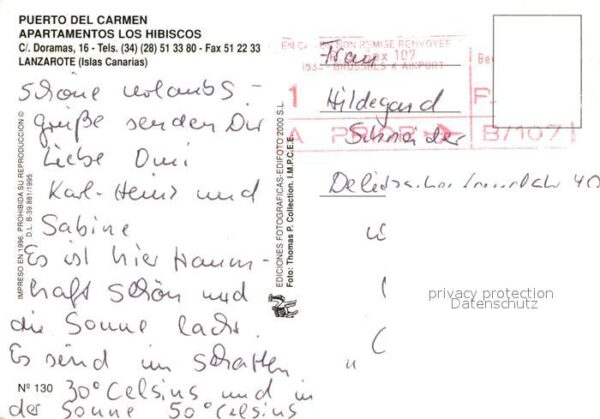 PUERTO DEL CARMEN
APARTAMENTOS LOS HIBISCOS
C/. Doramas, 16 - Tels. (34) (28) 51 33 80 - Fax 51 22 33
LANZAROTE (Islas Canarias)
schöne Urlaubs-
grüße senden Dir
Liebe Omi
Karl-Heinz und
Sabine
Es ist hier traum-
haft schön und
die Sonne lacht.
Es sind im Schatten
30° Celsius und in
der Sonne 50° Celsius
Nº 130
IMPRESO EN 1996. PROHIBIDA SU REPRODUCCION ©
D.L. B-39.881/1995
EDICIONES FOTOGRAFICAS-EDIFOTO 2000 S.L.
Foto: Thomas P. Collection. I.M.P.C.E.E.
EN CAS DE NON REMISE RENVOYER
107
BRUSSELS X AIRPORT
1
A PRIOR
B/107
Frau
Hildegard
Schröder
40
privacy protection
Datenschutz